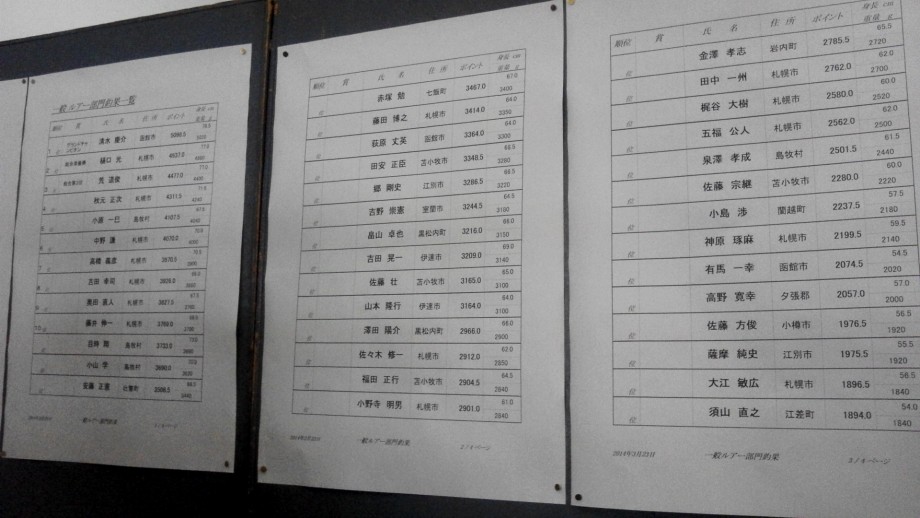 一般ルアー部門釣果一覧
順位 賞 氏 名 住 所 ポイント 身長 cm 重量 g
清水 慶介 函館市
樋口 光 札幌市 4937.0 77.0
札幌市 4471.0 77.0
秋元 正次 札幌市 4311.5
小原 一巳 島牧村 4107.5
中野 譲 札幌市 4070.0
札幌市 3970.5
吉田 幸司 札幌市
奥田 直人 札幌市 3827.5
10 藤井 伸一 札幌市
島牧村
小山 学 島牧村
安藤 正憲 比布町
一般ルアー部門釣果 1／4 ページ
順位 賞 氏 名 住 所 ポイント 身長 cm 重量 g
位 赤塚 勉 七飯町 3467.0 67.0 3400
位 藤田 博之 札幌市 3414.0 64.0 3350
位 荻原 丈英 函館市 3364.0 64.0 3300
位 田安 正臣 苫小牧市 3348.5 68.5 3280
位 郷 剛史 江別市 3286.5 66.5 3220
位 古野 崇憲 室蘭市 3244.5 64.5 3180
位 畠山 卓也 黒松内町 3216.0 66.0 3150
位 吉田 晃一 伊達市 3209.0 69.0 3140
位 佐藤 壮 苫小牧市 3165.0 65.0 3100
位 山本 隆行 伊達市 3164.0 64.0 3100
位 澤田 陽介 黒松内町 2966.0 66.0 2900
位 佐々木 修一 札幌市 2912.0 62.0 2850
位 福田 正行 苫小牧市 2904.5 64.5 2840
位 小野寺 明男 札幌市 2901.0 61.0 2840
2014年3月23日 一般ルアー部門釣果 2／4 ページ
順位 賞 氏 名 住 所 ポイント 身長 cm 重量 g
位 金澤 孝志 岩内町 2785.5 65.5 2720
位 田中 一州 札幌市 2762.0 62.0 2700
位 梶谷 大樹 札幌市 2580.0 60.0 2520
位 五福 公人 札幌市 2562.0 62.0 2500
位 泉澤 孝成 島牧村 2501.5 61.5 2440
位 佐藤 宗継 苫小牧市 2280.0 60.0 2220
位 小島 渉 蘭越町 2237.5 57.5 2180
位 神原 琢麻 札幌市 2199.5 59.5 2140
位 有馬 一幸 函館市 2074.5 54.5 2020
位 高野 寛幸 夕張郡 2057.0 57.0 2000
位 佐藤 方俊 小樽市 1976.5 56.5 1920
位 薩摩 純史 江別市 1975.5 55.5 1920
位 大江 敏広 札幌市 1896.5 56.5 1840
位 須山 直之 江差町 1894.0 54.0 1840
2014年3月23日 一般ルアー部門釣果 3／4 ページ